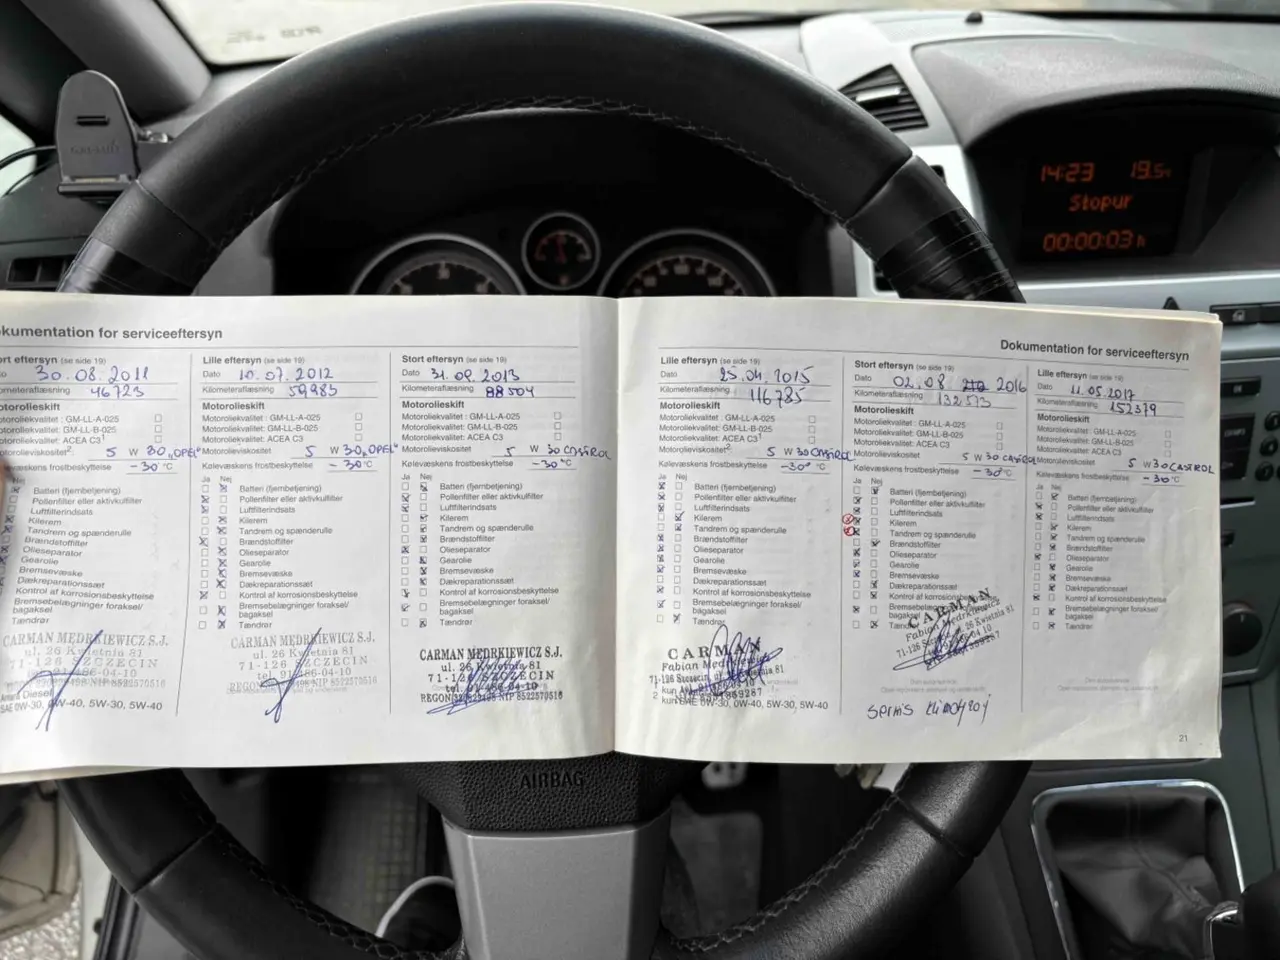 GARMIN
14:23 19.5°c
Stopur
00:00:03 h
kumentation for serviceeftersyn
ort eftersyn (se side 19)
30.08.2011
ometeraflæsning 46723
Motorolieskift
Motoroliekvalitet : GM-LL-A-025
Motoroliekvalitet: GM-LL-B-025
Motoroliekvalitet: ACEA C3¹
5 W 30 „OPEL"
kølevæskens frostbeskyttelse -30°C
Nej
Batteri (fjernbetjening)
Pollenfilter eller aktivkulfilter
Luftfilterindsats
Kilerem
Tandrem og spænderulle
Brændstoffilter
Olieseparator
Gearolie
Bremsevæske
Dækreparationssæt
Kontrol af korrosionsbeskyttelse
Bremsebelægninger foraksel/
bagaksel
Tændrør
CARMAN MEDRKIEWICZ S.J.
ul. 26 Kwietnia 81
71-126 SZCZECIN
Diesel
SAE 0W-30, 0W-40, 5W-30, 5W-40
Lille eftersyn (se side 19)
Dato 10.07.2012
Kilometeraflæsning 59985
Motorolieskift
Motoroliekvalitet : GM-LL-A-025
Motoroliekvalitet: GM-LL-B-025
Motoroliekvalitet: ACEA C3
Motorolieviskositet 5 W 30 „OPEL"
Kølevæskens frostbeskyttelse -30°C
Ja Nej
Batteri (fjernbetjening)
Pollenfilter eller aktivkulfilter
Luftfilterindsats
Kilerem
Tandrem og spænderulle
Brændstoffilter
Olieseparator
Gearolie
Bremsevæske
Dækreparationssæt
Kontrol af korrosionsbeskyttelse
Bremsebelægninger foraksel/
bagaksel
Tændrør
CARMAN MEDRKIEWICZ S.J.
ul. 26 Kwietnia 81
71-126 SZCZECIN
Stort eftersyn (se side 19)
Dato 31.08.2013
Kilometeraflæsning 88504
Motorolieskift
Motoroliekvalitet : GM-LL-A-025
Motoroliekvalitet: GM-LL-B-025
Motoroliekvalitet: ACEA C3
Motorolieviskositet 5 W 30 CASTROL
Kølevæskens frostbeskyttelse -30°C
Ja Nej
Batteri (fjernbetjening)
Pollenfilter eller aktivkulfilter
Luftfilterindsats
Kilerem
Tandrem og spænderulle
Brændstoffilter
Olieseparator
Gearolie
Bremsevæske
Dækreparationssæt
Kontrol af korrosionsbeskyttelse
Bremsebelægninger foraksel/
bagaksel
Tændrør
CARMAN MEDRKIEWICZ S.J.
ul. 26 Kwietnia 81
71-126 SZCZECIN
Dokumentation for serviceeftersyn
Lille eftersyn (se side 19)
Dato 25.04.2015
Kilometeraflæsning 116785
Motorolieskift
Motoroliekvalitet : GM-LL-A-025
Motoroliekvalitet: GM-LL-B-025
Motoroliekvalitet: ACEA C3¹
Motorolieviskositet² 5 W 30 CASTROL
Kølevæskens frostbeskyttelse -30°C
Ja Nej
Batteri (fjernbetjening)
Pollenfilter eller aktivkulfilter
Luftfilterindsats
Kilerem
Tandrem og spænderulle
Brændstoffilter
Olieseparator
Gearolie
Bremsevæske
Dækreparationssæt
Kontrol af korrosionsbeskyttelse
Bremsebelægninger foraksel/
bagaksel
Tændrør
CARMAN
SAE 0W-30, 0W-40, 5W-30, 5W-40
Stort eftersyn (se side 19)
Dato 02.08. 2016
Kilometeraflæsning 132513
Motorolieskift
Motoroliekvalitet : GM-LL-A-025
Motoroliekvalitet: GM-LL-B-025
Motoroliekvalitet: ACEA C3
Motorolieviskositet 5 W 30 CASTROL
Kølevæskens frostbeskyttelse -30°C
Ja Nej
Batteri (fjernbetjening)
Pollenfilter eller aktivkulfilter
Luftfilterindsats
Kilerem
Tandrem og spænderulle
Brændstoffilter
Olieseparator
Gearolie
Bremsevæske
Dækreparationssæt
Kontrol af korrosionsbeskyttelse
Bremsebelægninger foraksel/
bagaksel
Tændrør
CARMAN
Lille eftersyn (se side 19)
Dato 11.05.2017
Kilometeraflæsning 152379
Motorolieskift
Motoroliekvalitet : GM-LL-A-025
Motoroliekvalitet: GM-LL-B-025
Motoroliekvalitet: ACEA C3
Motorolieviskositet 5 W 30 CASTROL
Kølevæskens frostbeskyttelse -30°C
Ja Nej
Batteri (fjernbetjening)
Pollenfilter eller aktivkulfilter
Luftfilterindsats
Kilerem
Tandrem og spænderulle
Brændstoffilter
Olieseparator
Gearolie
Bremsevæske
Dækreparationssæt
Kontrol af korrosionsbeskyttelse
Bremsebelægninger foraksel/
bagaksel
Tændrør
21
AIRBAG